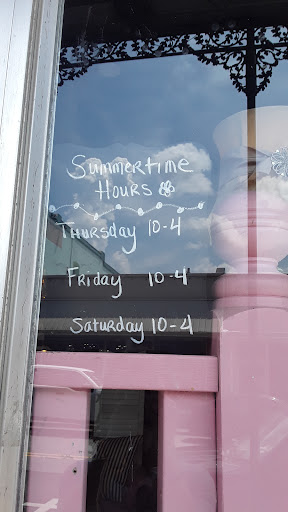 Summertime
Hours
Thursday 10-4
Friday 10-4
Saturday 10-4